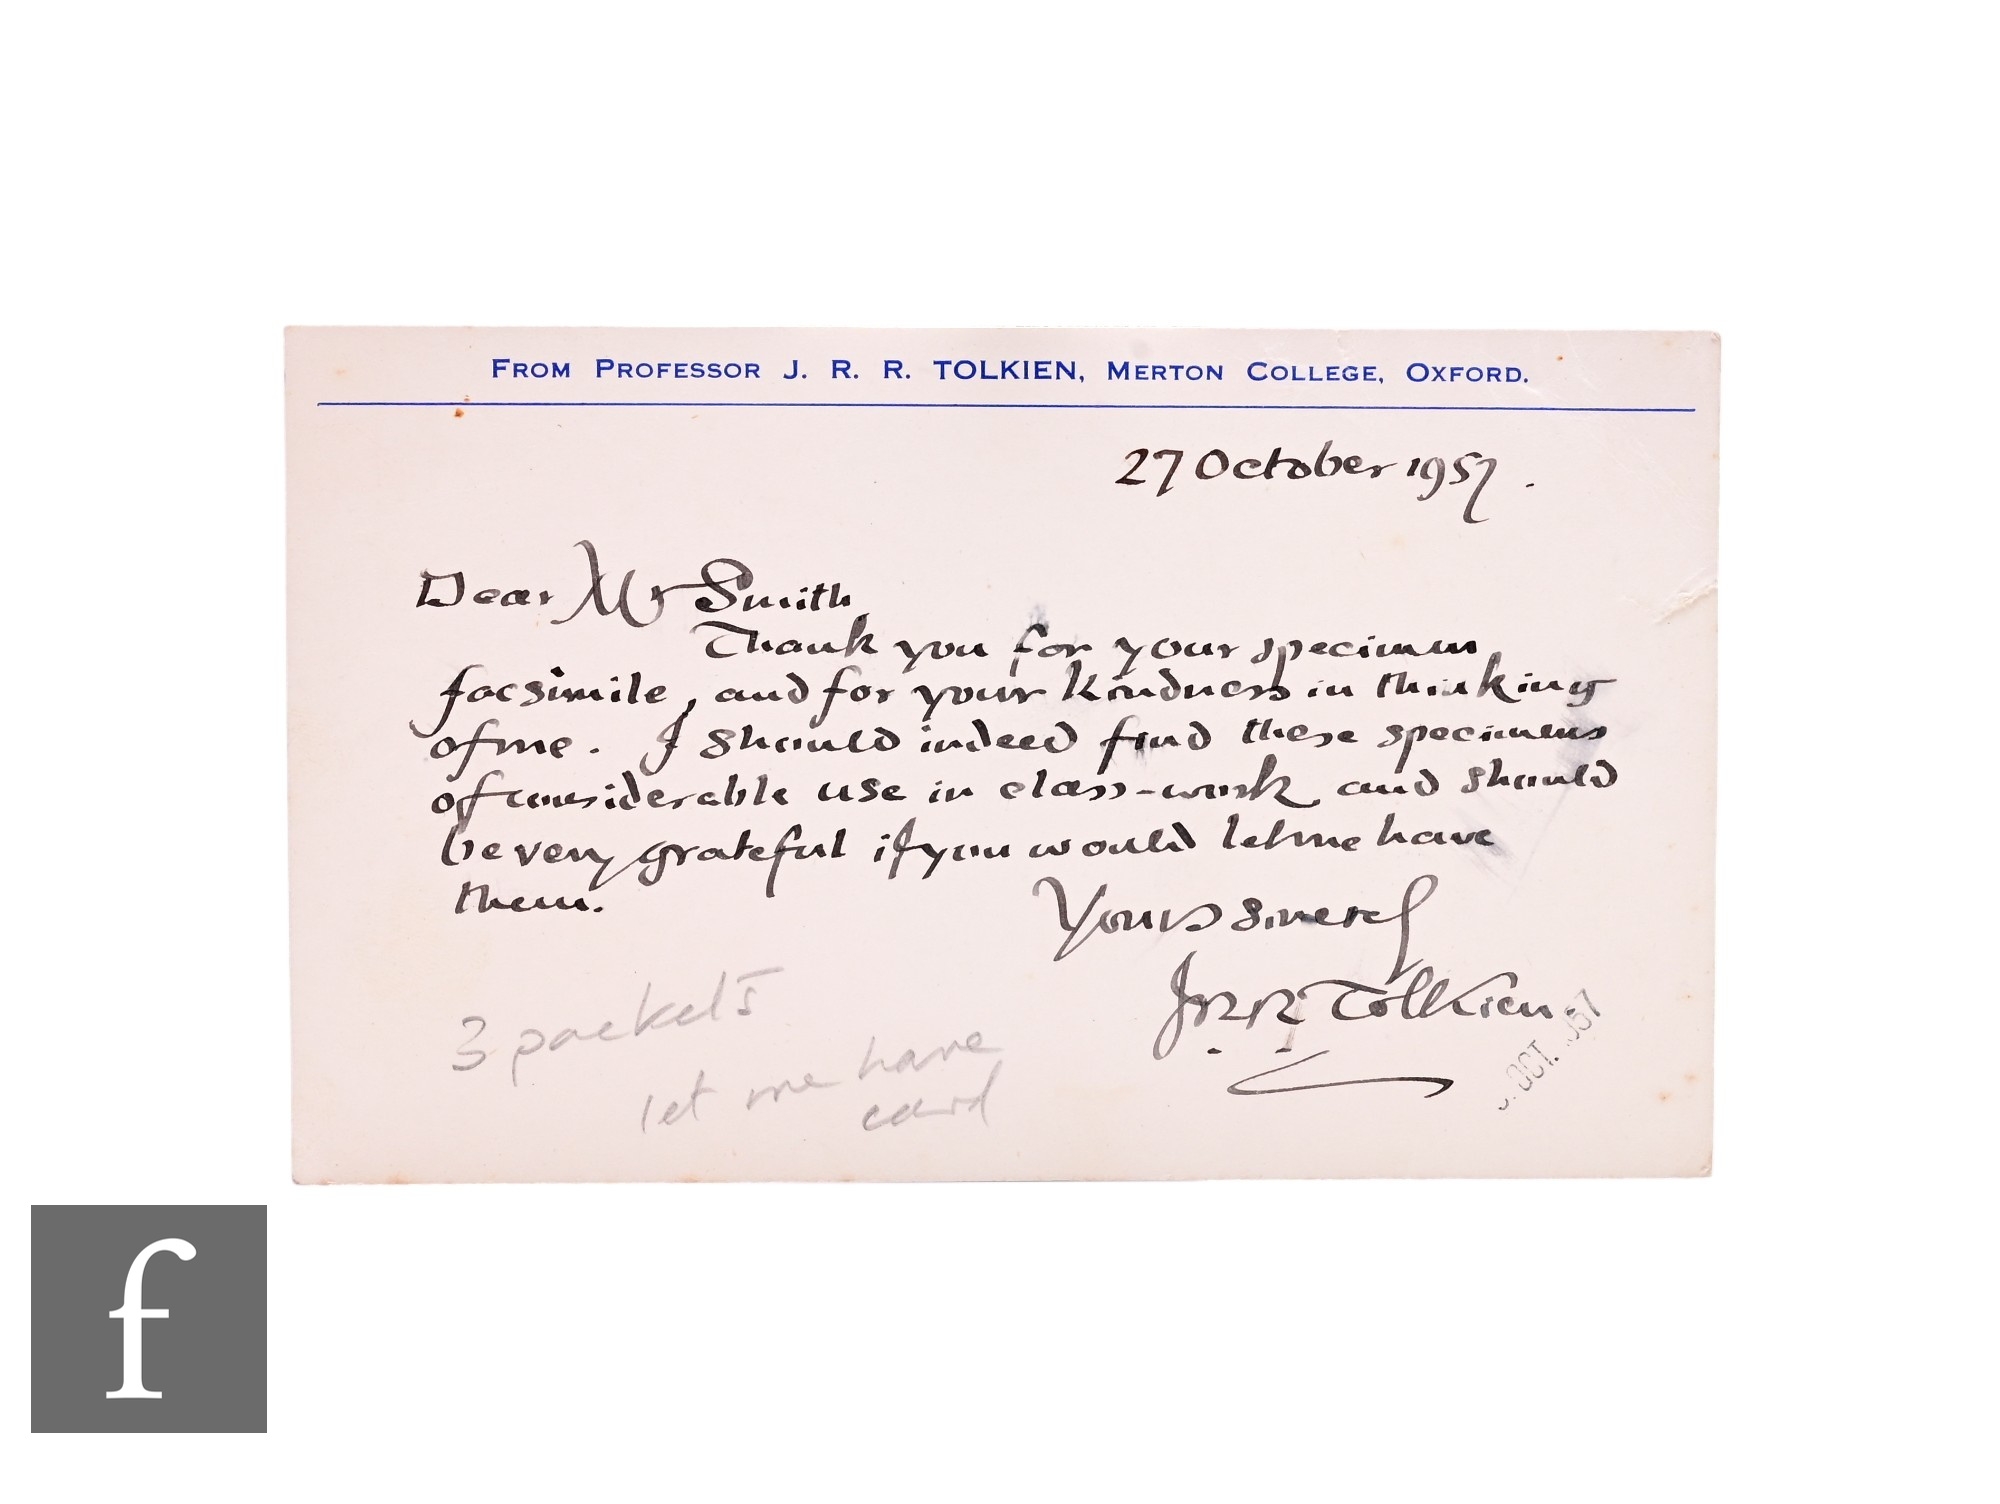 FROM PROFESSOR J. R. R. TOLKIEN, MERTON COLLEGE, OXFORD.
27 October 1957.
Dear Mr Smith
Thank you for your specimen
facsimile, and for your kindness in thinking
of me. I should indeed find these specimens
of considerable use in class-work and should
be very grateful if you would let me have
them.
Yours sincerely
JRR Tolkien.
OCT. 1957
3 packets
let me have
card
f